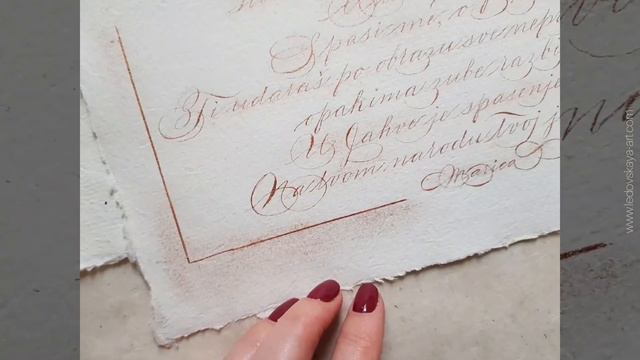 Uz
Spasi me, o B
Ti udaraš po obrazu sve nepr
opakima zube razbi
U Jahve je spasenje
Na tvom narodu tvoj
Marica
www.ledovskaya-art.com